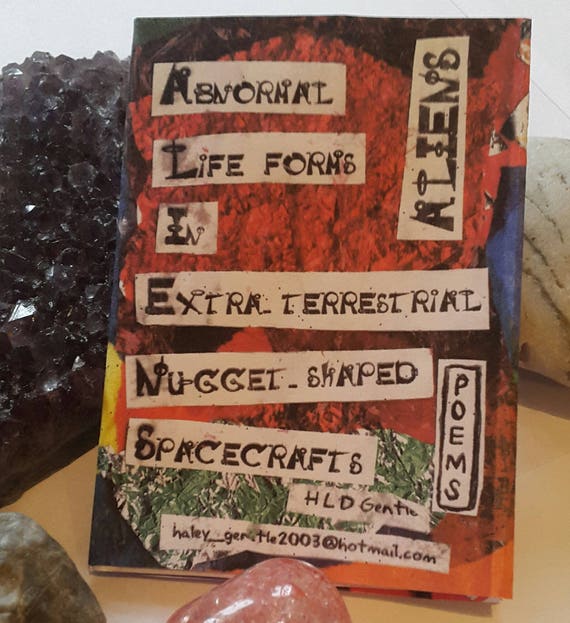 ABNORMAL
LIFE FORMS
IN
EXTRA-TERRESTRIAL
NUGGET-SHAPED
SPACECRAFTS
ALIENS
POEMS
HLD Gentle
haley_gentle2003@hotmail.com